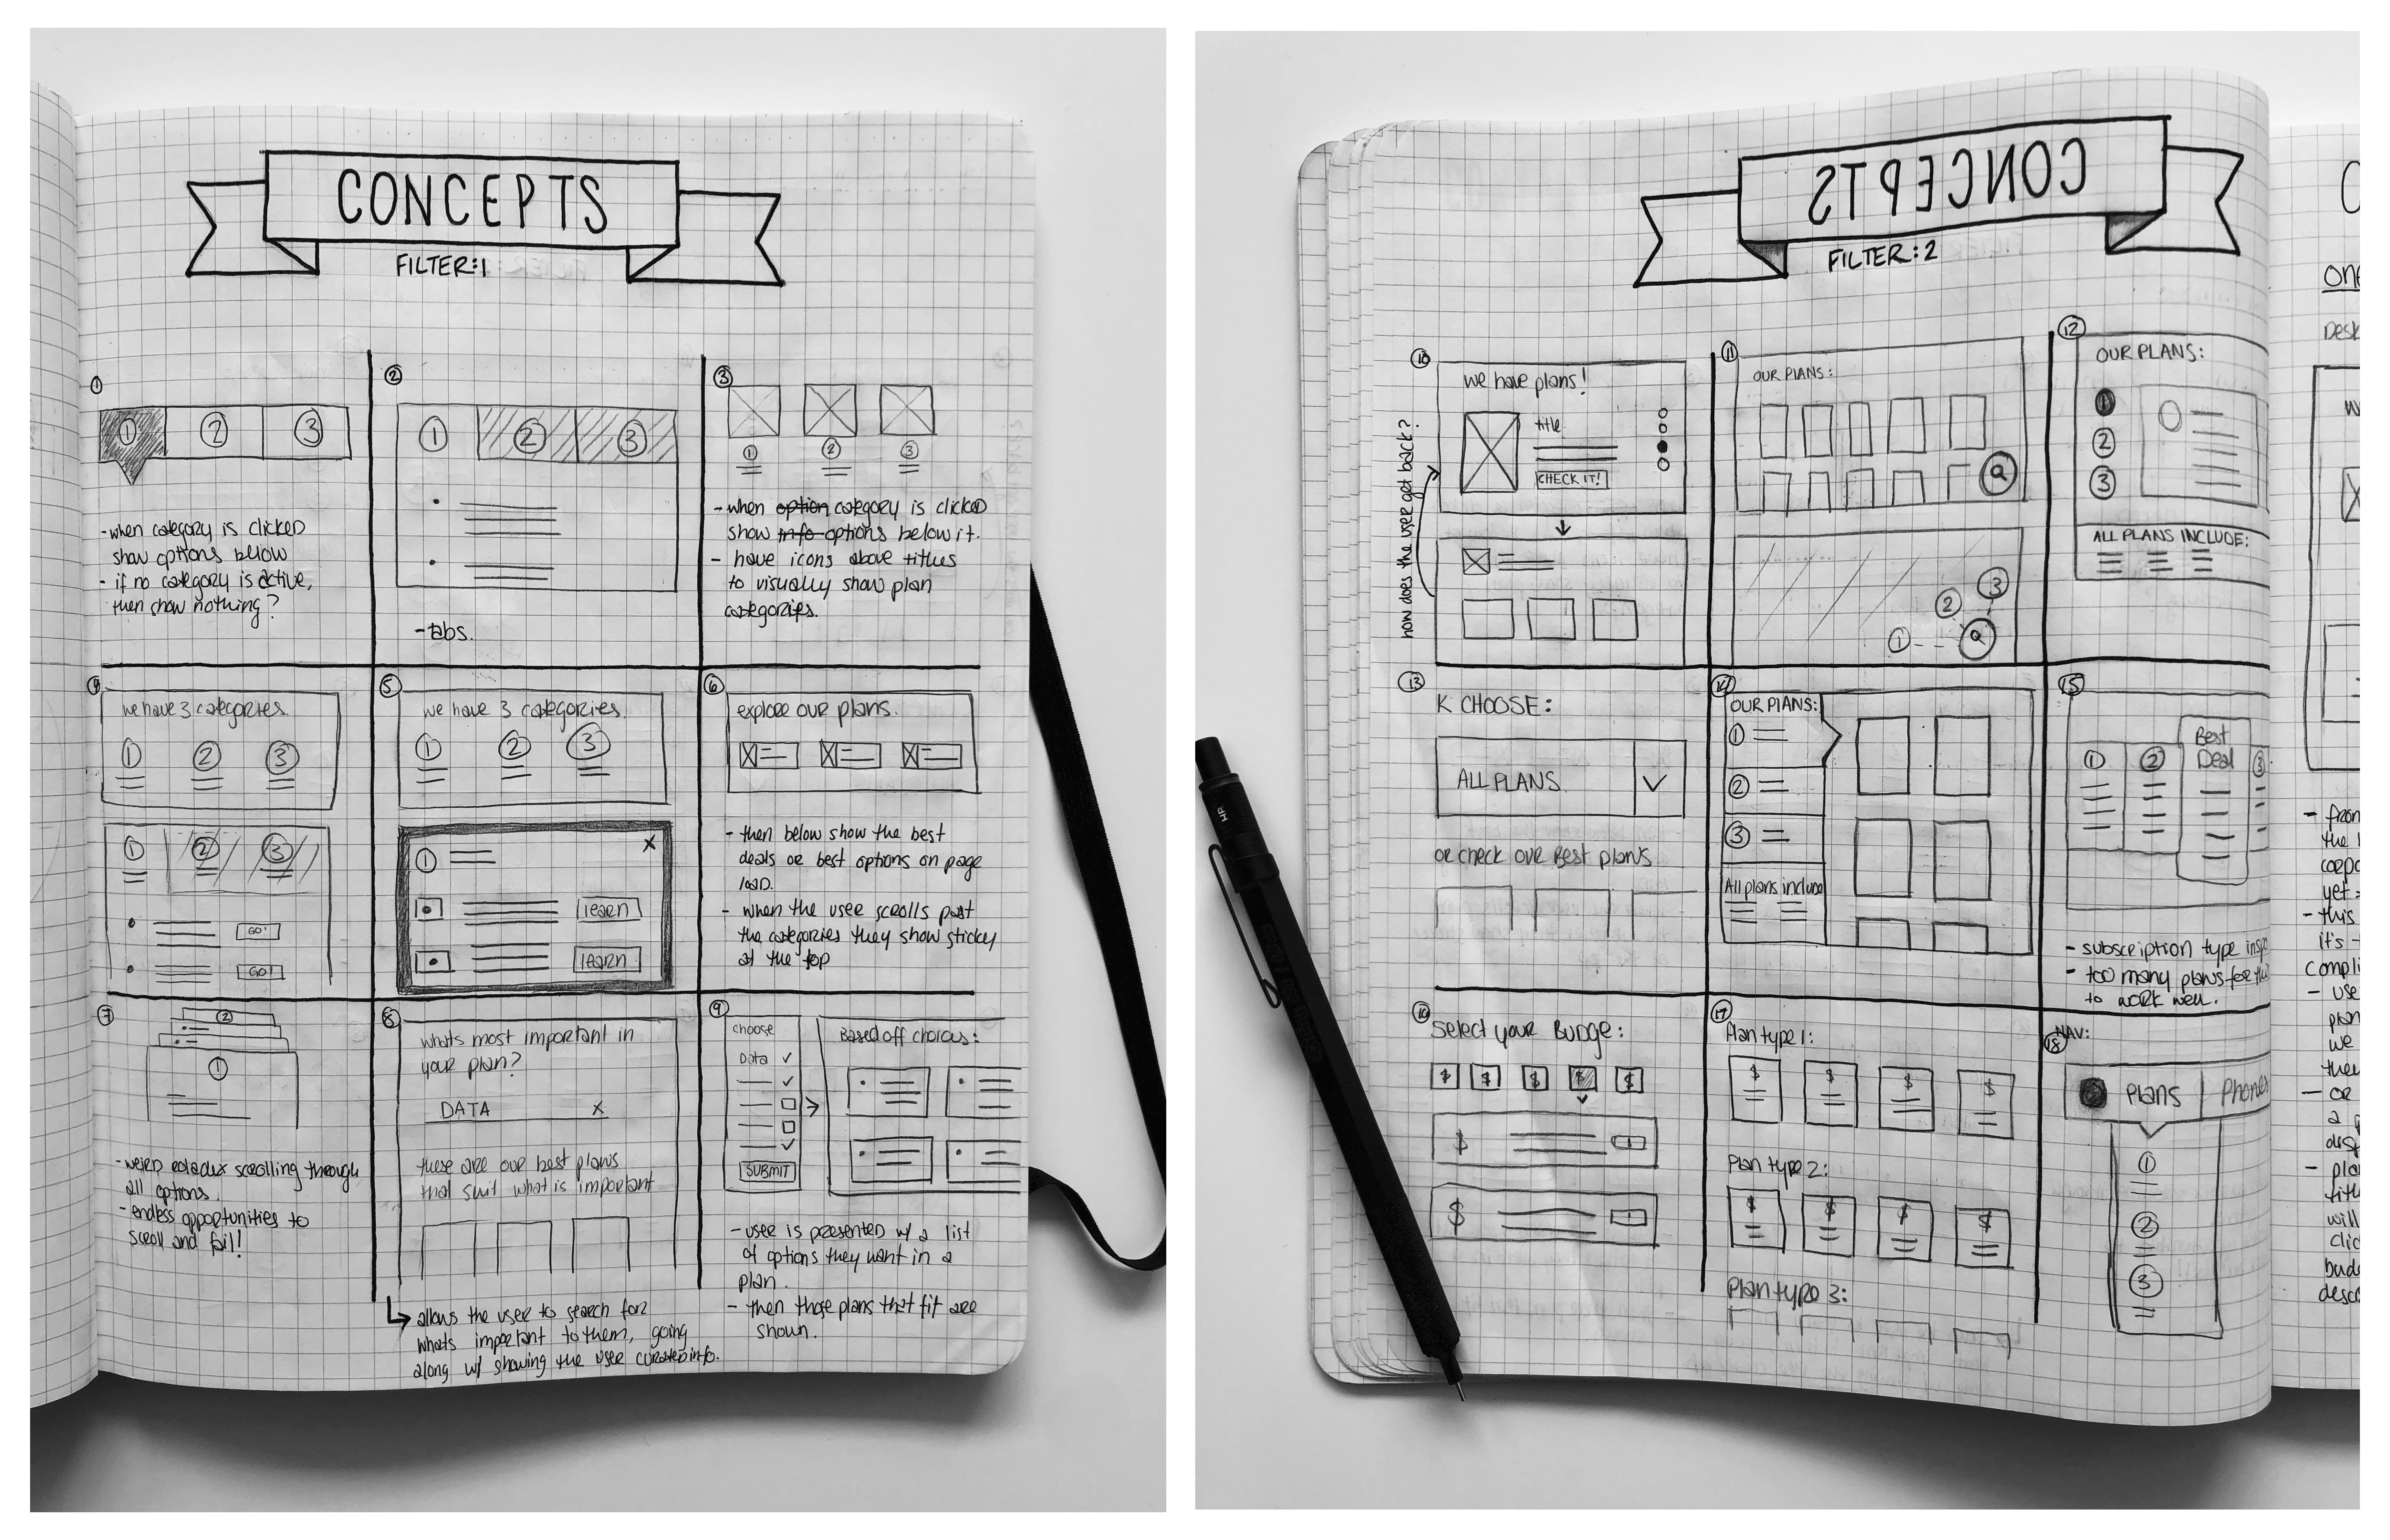 CONCEPTS
FILTER:1
1
1 2 3
-when category is clicked
show options below
- if no category is active,
then show nothing?
2
1 2 3
-tabs.
3
1 2 3
-when option category is clicked
show info options below it.
- have icons above titles
to visually show plan
categories.
4
we have 3 categories.
1 2 3
1 2 3
GO!
GO!
5
we have 3 categories.
1 2 3
1 X
learn
learn
6
explore our plans.
- then below show the best
deals or best options on page
load.
- when the user scrolls past
the categories they show sticky
at the top
7
2
1
-weird rolodex scrolling through
all options.
-endless opportunities to
scroll and fail!
8
whats most important in
your plan?
DATA X
these are our best plans
that suit what is important
allows the user to search for
whats important to them, going
along w/ showing the user curated info.
9
choose
Data
SUBMIT
Based off choices:
-user is presented w/ a list
of options they want in a
plan.
- then those plans that fit are
shown.
CONCEPTS
FILTER:2
10
we have plans!
title
CHECK IT!
how does the user get back?
11
OUR PLANS:
Q
1 2 3 Q
12
OUR PLANS:
1
2
3
ALL PLANS INCLUDE:
13
K CHOOSE:
ALL PLANS.
or check our Best plans
14
OUR PLANS:
1
2
3
All plans include
15
Best
Deal
1 2 3
- subscription type
- too many plans for this
to work well.
16
Select your Budge:
$ $ $ $ $
$
$
17
Plan type 1:
$ $ $ $
Plan type 2:
$ $ $ $
Plan type 3:
18
NAV:
Plans Phones
1
2
3
- from
the
yet
- this
it's
- use
we
- OR
a
will
HB